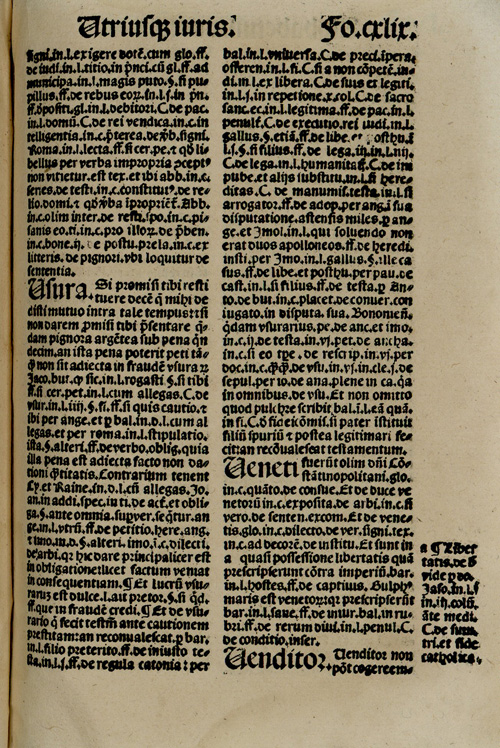 Utriusqꝫ iuris. Fo.cxlix.
signi.in.l.exigere dotē.cum glo.ff.
de iudi.in.l.titio.in pͥnci.cū gl.ff.ad
municipa.in.l.magis puto.§.si pu⸗
pillus.ff.de rebus eoꝝ.in.l.s.in pn̄.
in.l.debitori.C.de pac.
in.l.domū.C.de rei vendica.in.c.in
telligentia.in.c.pͥterea.de v̄b.signi.
Roma.in.l.lecta.ff.si cer.pe.⁊ qď li⸗
bellus per verba impropria ꝯcept⁹
non vitietur.est tex.et ibi abb.in.c.
in.c.olim inter.de resti.spo.in.c.pi⸗
sanis eo.ti.in.c.pro illoꝝ.de p̄ben.
in.c.bone.ij. e postu.prela.in.c.ex
litteris.de pignori.vbi loquitur de
sententia.
Usura. Si promisi tibi resti
tuere decē q̄ mihi de
disti mutuo intra tale tempus:⁊ si
non darem ꝓmisi tibi p̄sentare q̄⸗
dam pignora argētea sub pena qͥn
decim.an ista pena poterit peti tā⸗
ꝙ̄ non sit adiecta in fraudē vsuraꝝ
Jaco.but.ꝙ sic.in.l.rogasti §.si tibi
ff.si cer.pet.in.l.cum allegas.C.de
vsur.in.l.iiij.§.si.ff.si quis cautio.⁊
ibi per ange.et ꝑ bal.in d.l.cum al
legas.et per roma.in.l.stipulatio.
ista.§.alteri.ff.de verbo.oblig.quia
illa pena est adiecta facto non da⸗
tioni q̄titatis. Contrarium tenent
Cy.et Raine.in.d.l.cū allegas. Jo.
an.in addi.spec.in ti.de act̄.et obli⸗
ga.§.ante omnia.supver.seq̄tur.an
ge.in.l.vtrū.ff.de petitio.here.ang.
⁊ imo.in.d.§.alteri.imo.i.c.dilecti.
de arbi.qꝛ hic dare principaliter est
in obligatione:licet factum veniat
in consequentiam.¶ Et lucrū vsu⸗
rarū est dulce.l.ait pretor.§.si qͥd.
ff.que in fraudē credi.¶ Et de vsu⸗
rario q̄ fecit testm̄ ante cautionem
prestitam:an reconualescat.ꝑ bar.
in.l.filio preterito.ff.de iniusto te⸗
sta.in.l.j.ff.de regula catonia: per
bal.in.l.vniuersa.C.de preci.ipera.
offeren.in.l.fi.C.si a non cōpetē.iu⸗
di.in.l.ex libera.C.de suis et legiti.
in.l.j.in repetione.x.col.C.de sacro
sanc.ec.in.l.legitima.ff.de pac.in.l.
penult̄.C.de executio.rei iudi.in.l.
gallus.§.etiā.ff.de libe.et posthu.i.
l.j.§.si filius.ff.de lega.iij.in.l.iiij.
C.de lega.in.l.humanitatis.C.de im
pube.et alijs substitu.in.l.si here⸗
ditas.C.de manumis.testa.in.l.si
arrogator.ff.de adop.per ang.i sua
disputatione.astensis miles.ꝑ an⸗
ge.et Jmol.in.l.qui soluendo non
erat duos apolloneos.ff.de heredi.
insti.per Jmo.in.l.gallus.§.ille ca
sus.ff.de libe.et posthu.per pau.de
cast.in.l.si filius.ff.de testa.ꝑ An⸗
to.de but.in.c.placet.de conuer.con
iugato.in disputa.sua.Bononueñ.
q̄dam vsurarius.pe.de anc.et imo.
in.c.ij.de testa.in.vj.pet.de archa.
in.c.si eo tpe.de rescrip.in.vj.per
doc.in.c.ꝙꝙ̄.de vsu.in.vj.in cle.j.de
sepul.per io.de ana.plene in ca.q̄a
in omnibus.de vsu. Et non omitto
quod pulchre scribit bal.i.l.eā quā.
in fi.C.ō fideicōmis.si pater īstituit
filiū spuriū ⁊ postea legitimari fe⸗
cit:an recōualescat testamentum.
Ueneti fuerūt olim dn̄i Cō⸗
stātinopolitani.glo.
in.c.quāto.de consue.Et de duce ve
netorū in.c.exposita.de arbi.in.c.si
vero.de senten.excom.Et de vene⸗
tis.glo.in.c.dilecto.de ver.signi.tex.
in.c.ad decorē.de institu.Et sunt in
a quasi possessione libertatis quā
prescripserunt cōtra imperiū.bar.
in.l.hostes.ff.de captius. Gulph⁹
maris est venetoꝝ:qꝛ prescripserūt
bar.in.l.sane.ff.de iniur.bal.in ru⸗
bri.ff.de rerum diui.in.l.penul.C.
de conditio.inser.
Uenditor. Uenditor non
pōt cogere em⸗
a ¶ Liber
tatis.de ō
vide ꝑ do.
Jaso.in.l.s
in.iij.colū.
āte medi.
C.de sum.
tri.et fide
catholica.